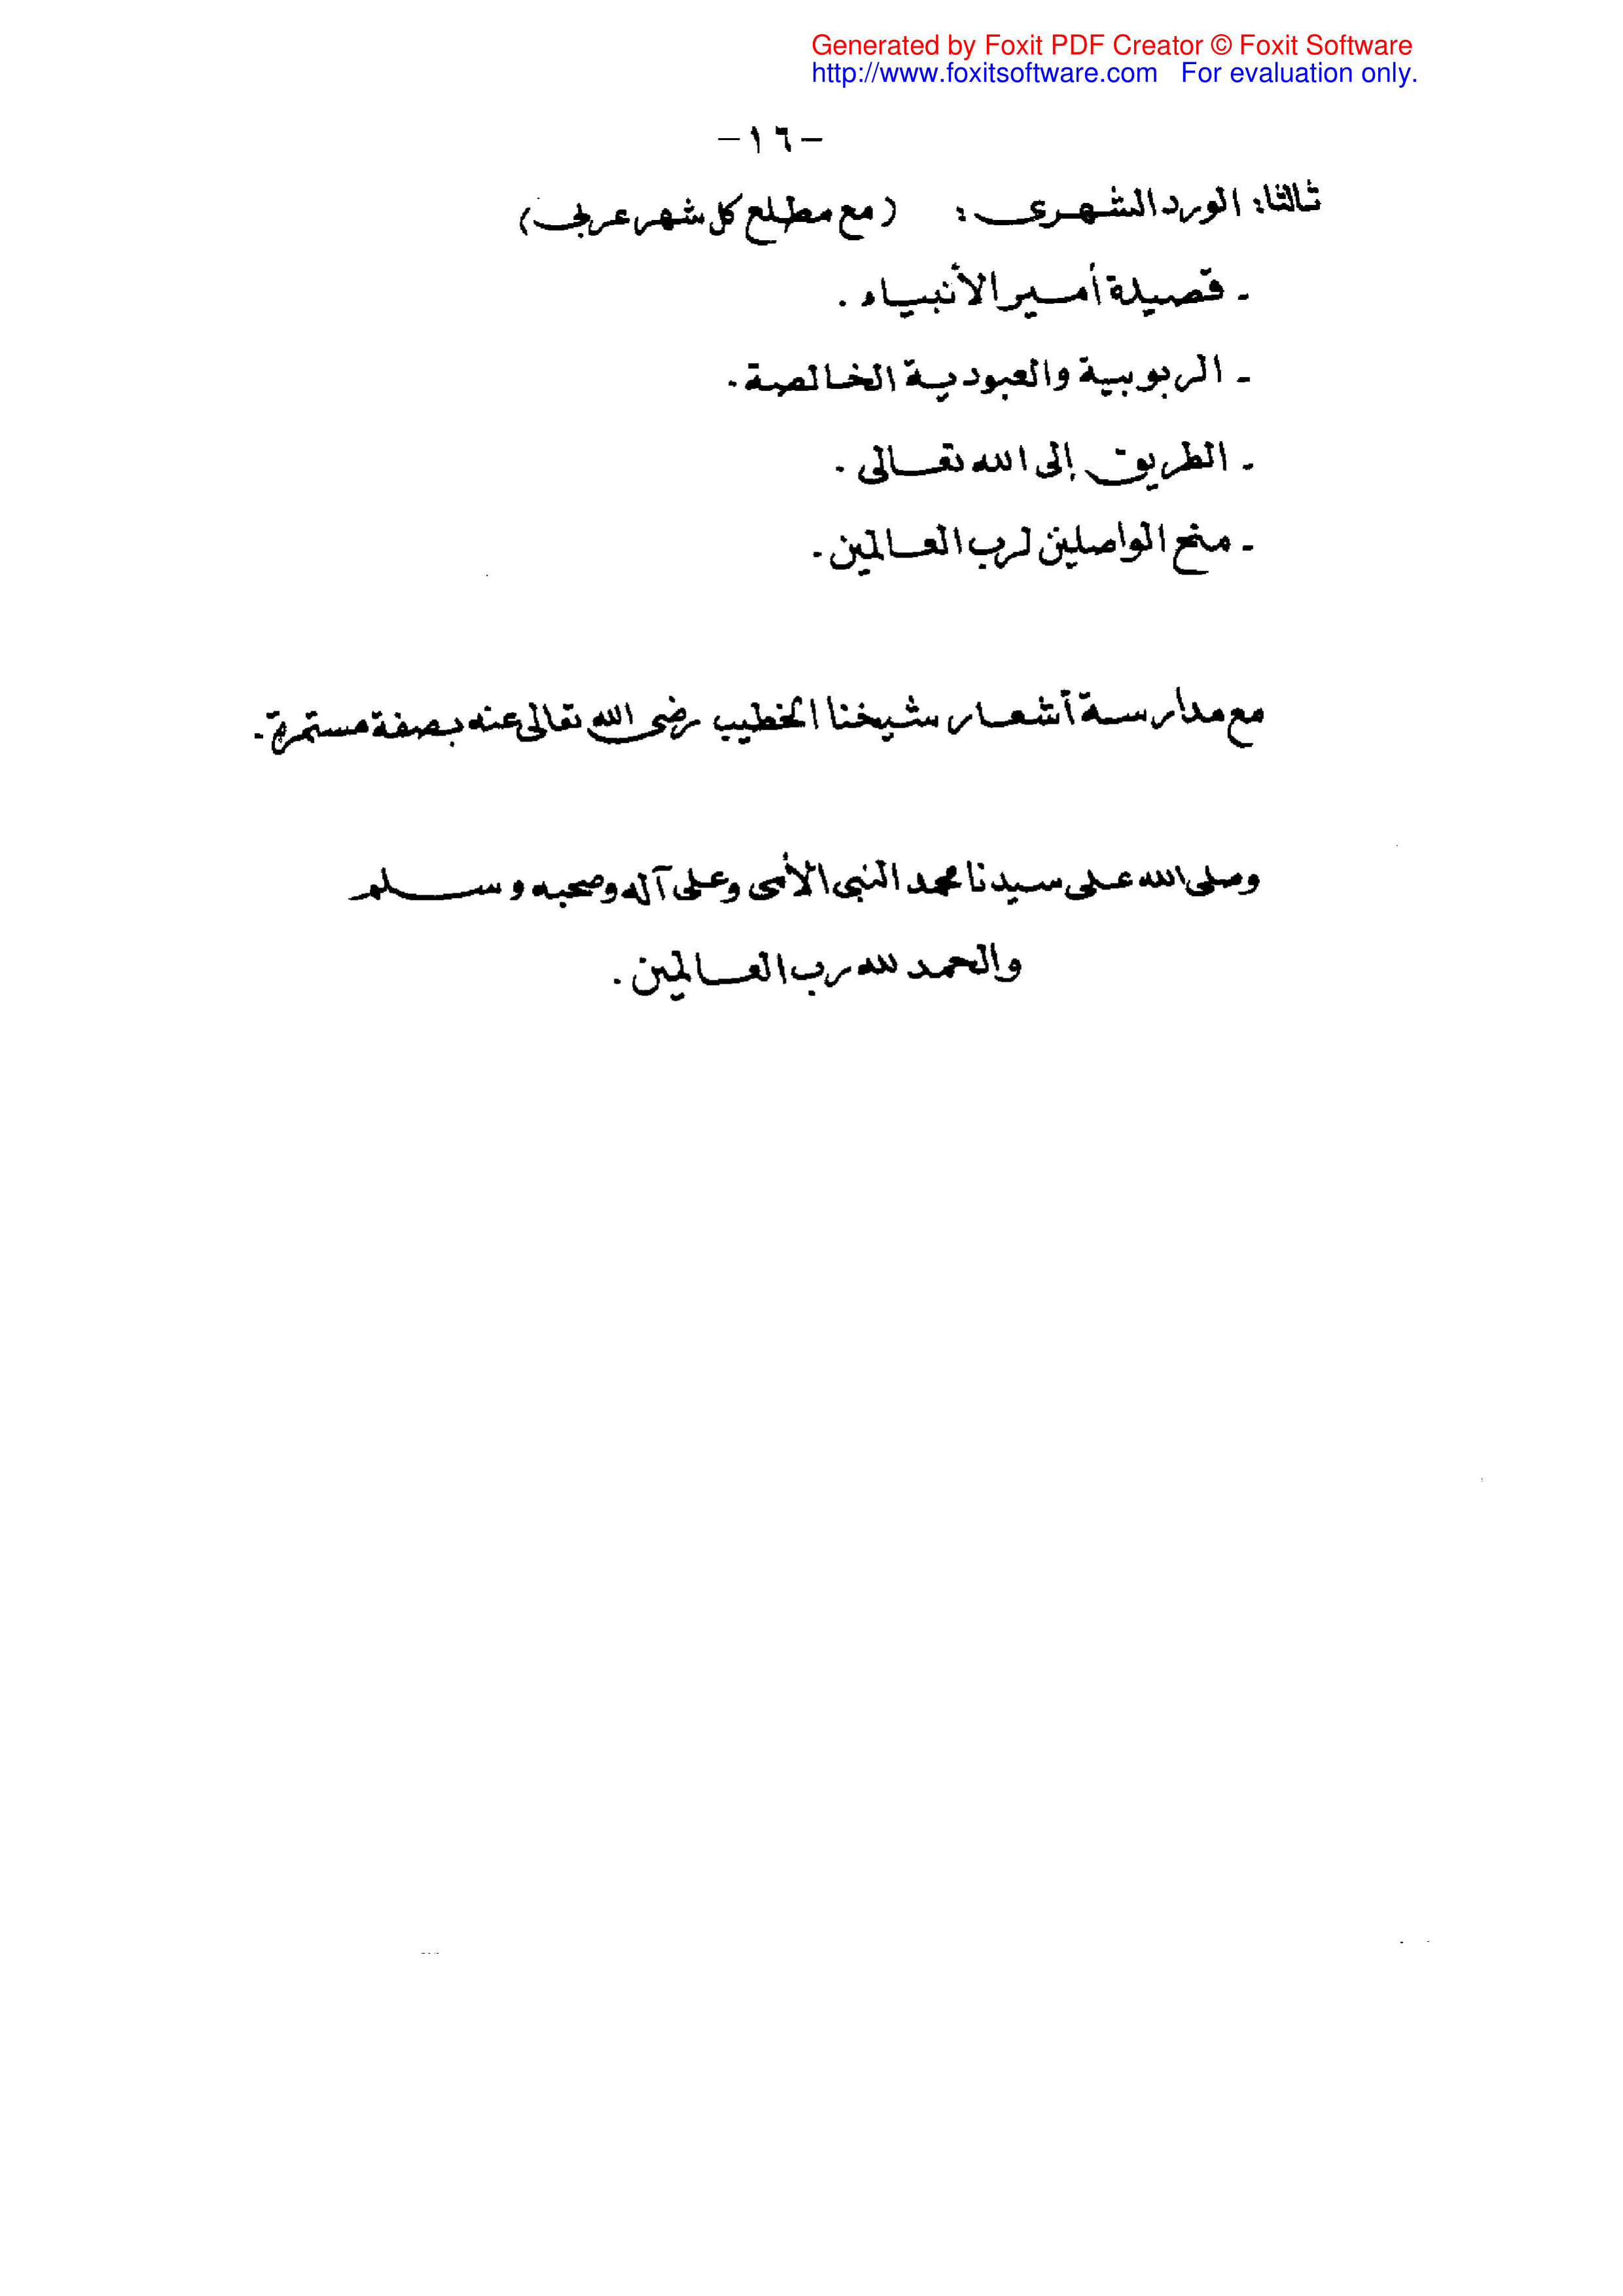 Generated by Foxit PDF Creator © Foxit Software
http://www.foxitsoftware.com For evaluation only.
-١٦-
ثالثا: الورد الشهرى : (مع مطلع كل شهر عربى)
- قصيدة أمير الأنبياء .
- الربوبية والعبودية الخالصة.
- الطريق إلى الله تعالى .
- منح الواصلين لرب العالمين.
مع مدارسة أشعار شيخنا الخطيب رضى الله تعالى عنه بصفة مستمرة.
وصلى الله على سيدنا محمد النبى الأمى وعلى آله وصحبه وسلم
والحمد لله رب العالمين .